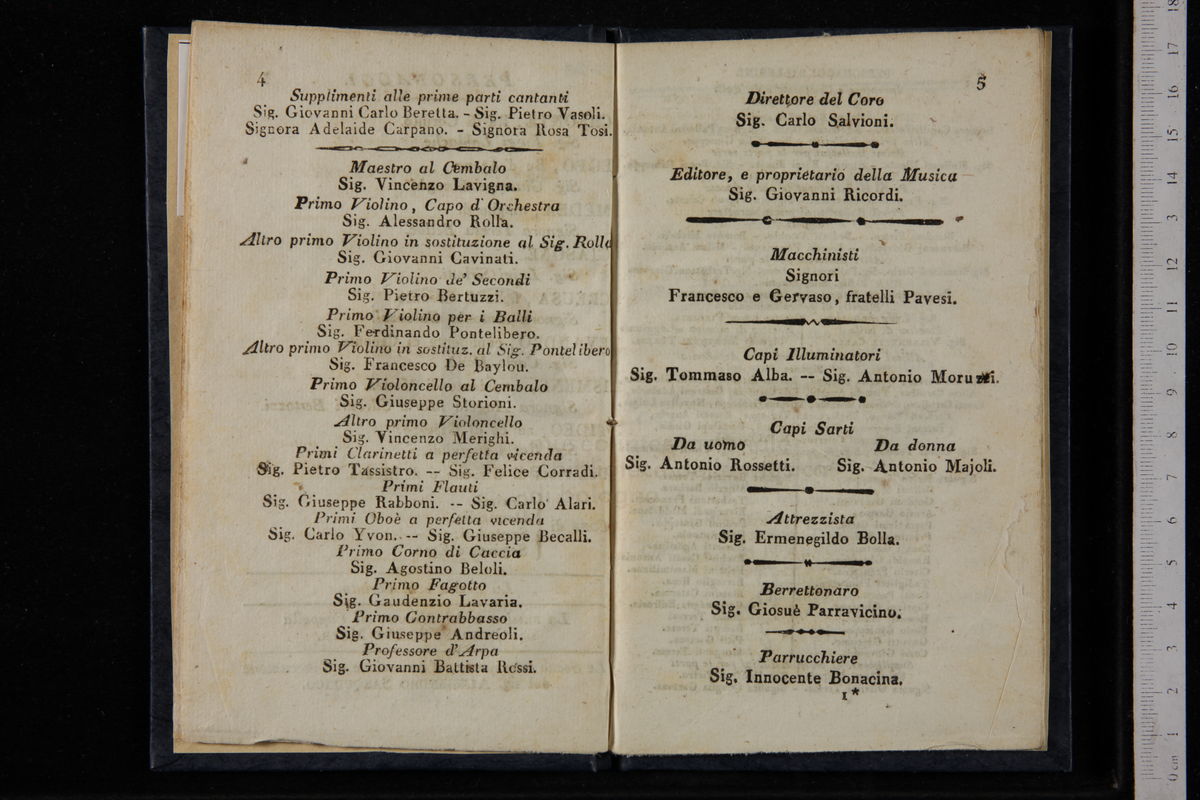 4
Supplimenti alle prime parti cantanti
Sig. Giovanni Carlo Beretta. - Sig. Pietro Vasoli.
Signora Adelaide Carpano. - Signora Rosa Tosi.
Maestro al Cembalo
Sig. Vincenzo Lavigna.
Primo Violino, Capo d'Orchestra
Sig. Alessandro Rolla.
Altro primo Violino in sostituzione al Sig. Rolla
Sig. Giovanni Cavinati.
Primo Violino de' Secondi
Sig. Pietro Bertuzzi.
Primo Violino per i Balli
Sig. Ferdinando Pontelibero.
Altro primo Violino in sostituz. al Sig. Pontelibero
Sig. Francesco De Baylou.
Primo Violoncello al Cembalo
Sig. Giuseppe Storioni.
Altro primo Violoncello
Sig. Vincenzo Merighi.
Primi Clarinetti a perfetta vicenda
Sig. Pietro Tassistro. -- Sig. Felice Corradi.
Primi Flauti
Sig. Giuseppe Rabboni. -- Sig. Carlo Alari.
Primi Oboè a perfetta vicenda
Sig. Carlo Yvon. -- Sig. Giuseppe Becalli.
Primo Corno di Caccia
Sig. Agostino Beloli.
Primo Fagotto
Sig. Gaudenzio Lavaria.
Primo Contrabbasso
Sig. Giuseppe Andreoli.
Professore d'Arpa
Sig. Giovanni Battista Rossi.
5
Direttore del Coro
Sig. Carlo Salvioni.
Editore, e proprietario della Musica
Sig. Giovanni Ricordi.
Macchinisti
Signori
Francesco e Gervaso, fratelli Pavesi.
Capi Illuminatori
Sig. Tommaso Alba. -- Sig. Antonio Moruzzi.
Capi Sarti
Da uomo Da donna
Sig. Antonio Rossetti. Sig. Antonio Majoli.
Attrezzista
Sig. Ermenegildo Bolla.
Berrettonaro
Sig. Giosuè Parravicino.
Parrucchiere
Sig. Innocente Bonacina.
1*
0 cm 1 2 3 4 5 6 7 8 9 10 11 12 13 14 15 16 17 18